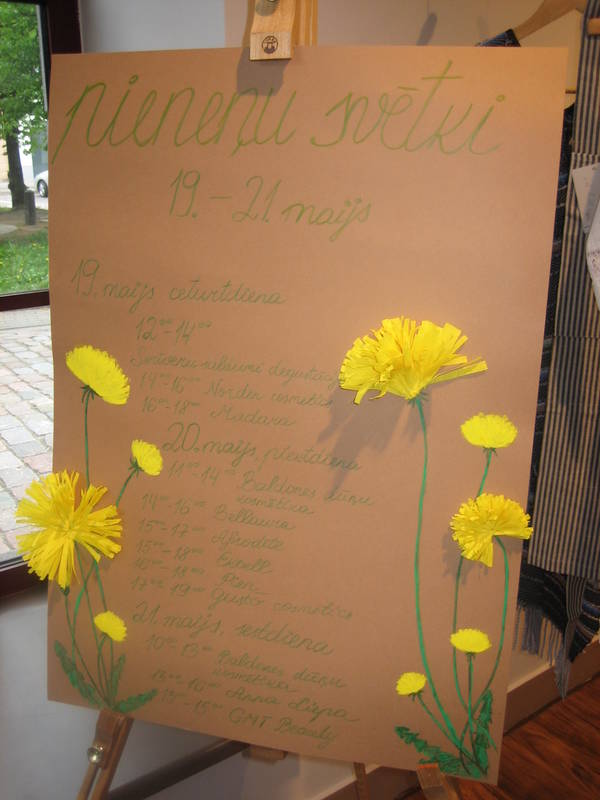 pieneņu svētki
19. - 21. maijs
19. maijs ceturtdiena
12⁰⁰-14⁰⁰
degustācija
14⁰⁰-16⁰⁰ Norden cosmetics
16⁰⁰-18⁰⁰ Madara
20. maijs, piektdiena
11⁰⁰-14⁰⁰ Baldones dūņu
kosmētika
14⁰⁰-16⁰⁰ Bellaura
15⁰⁰-17⁰⁰ Afrodīte
15⁰⁰-18⁰⁰
16⁰⁰-18⁰⁰
17⁰⁰-19⁰⁰ Gusto cosmetics
21. maijs, sestdiena
10⁰⁰-13⁰⁰ Baldones dūņu
kosmētika
13⁰⁰-16⁰⁰ Anna Liepa
13⁰⁰-15⁰⁰ GMT Beauty